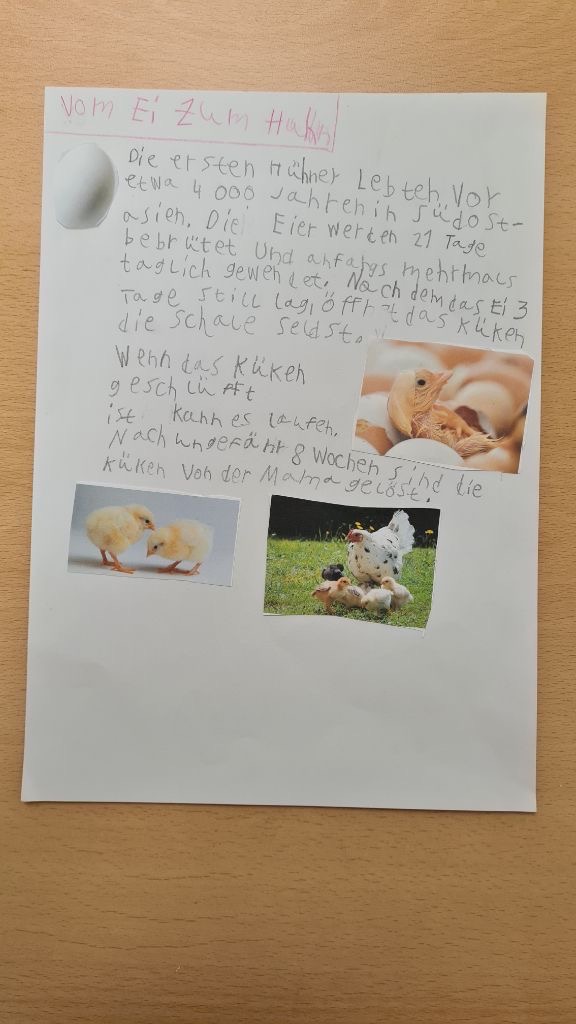 Vom Ei Zum Hahn
Die ersten Hühner Lebten Vor
etwa 4 000 Jahren in Südost-
asien. Die Eier werten 21 Tage
bebrütet und anfangs mehrmals
täglich gewendet. Nach dem das Ei 3
Tage still lag, öffnet das Küken
die Schale selbst.
Wenn das Küken
geschlüfft
ist kann es laufen.
Nach ungefähr 8 Wochen sind die
Küken von der Mama gelöst.